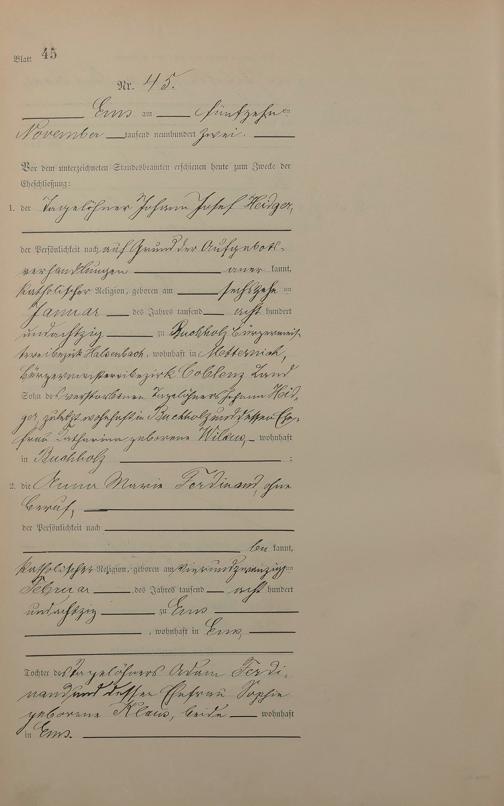 Blatt 45
Nr. 45.
Ems am fünfzehn ten
November tausend neunhundert zwei.
Vor dem unterzeichneten Standesbeamten erschienen heute zum Zwecke der
Eheschließung:
1. der Tagelöhner Johann Josef Heidger,
der Persönlichkeit nach auf Grund der Aufgebots-
verhandlungen aner kannt,
katholischer Religion, geboren am sechszehn ten
Januar des Jahres tausend acht hundert
undachtzig zu Buchholz Bürgermeis-
tereibezirk Halsenbach, wohnhaft in Metternich,
Bürgermeistereibezirk Coblenz Land
Sohn des verstorbenen Tagelöhners Johann Heid-
ger, zuletzt wohnhaft in Buchholz und dessen Ehe-
frau Catharina geborene wohnhaft
in Buchholz :
2. die Anna Marie Ferdinand, ohne
Beruf,
der Persönlichkeit nach
be kannt,
katholischer Religion, geboren am vierundzwanzigsten
Februar des Jahres tausend acht hundert
undachtzig zu Ems
, wohnhaft in Ems,
Tochter des Tagelöhners Adam Ferdi-
nand und dessen Ehefrau Sophie
geborene Klaus, beide wohnhaft
in Ems.